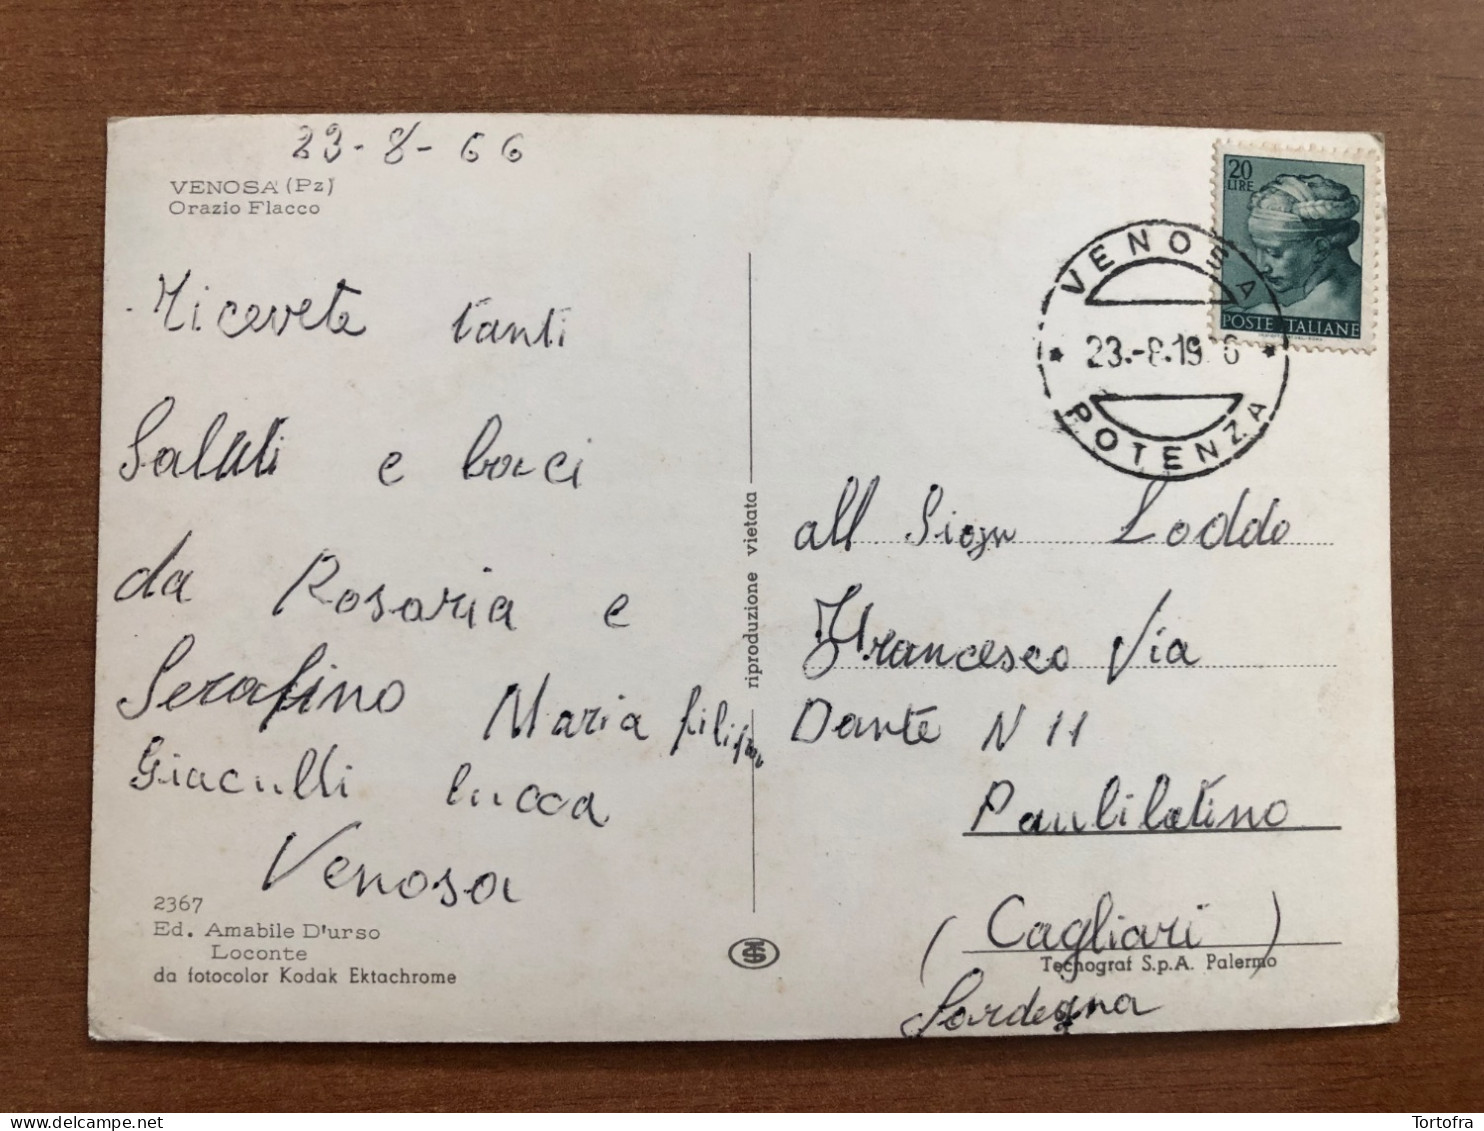 23-8-66
VENOSA (Pz)
Orazio Flacco
Ricevete tanti
Saluti e baci
da Rosaria e
Serafino Maria
Giaculli lucca
Venosa
2367
Ed. Amabile D'urso
Loconte
da fotocolor Kodak Ektachrome
riproduzione vietata
20
LIRE
POSTE ITALIANE
VENOSA
23.-8.19 6
POTENZA
all Sign Loddo
Francesco Via
Dante N 11
Paulilatino
(Cagliari)
Tecnograf S.p.A. Palermo
Sardegna
Tortofra